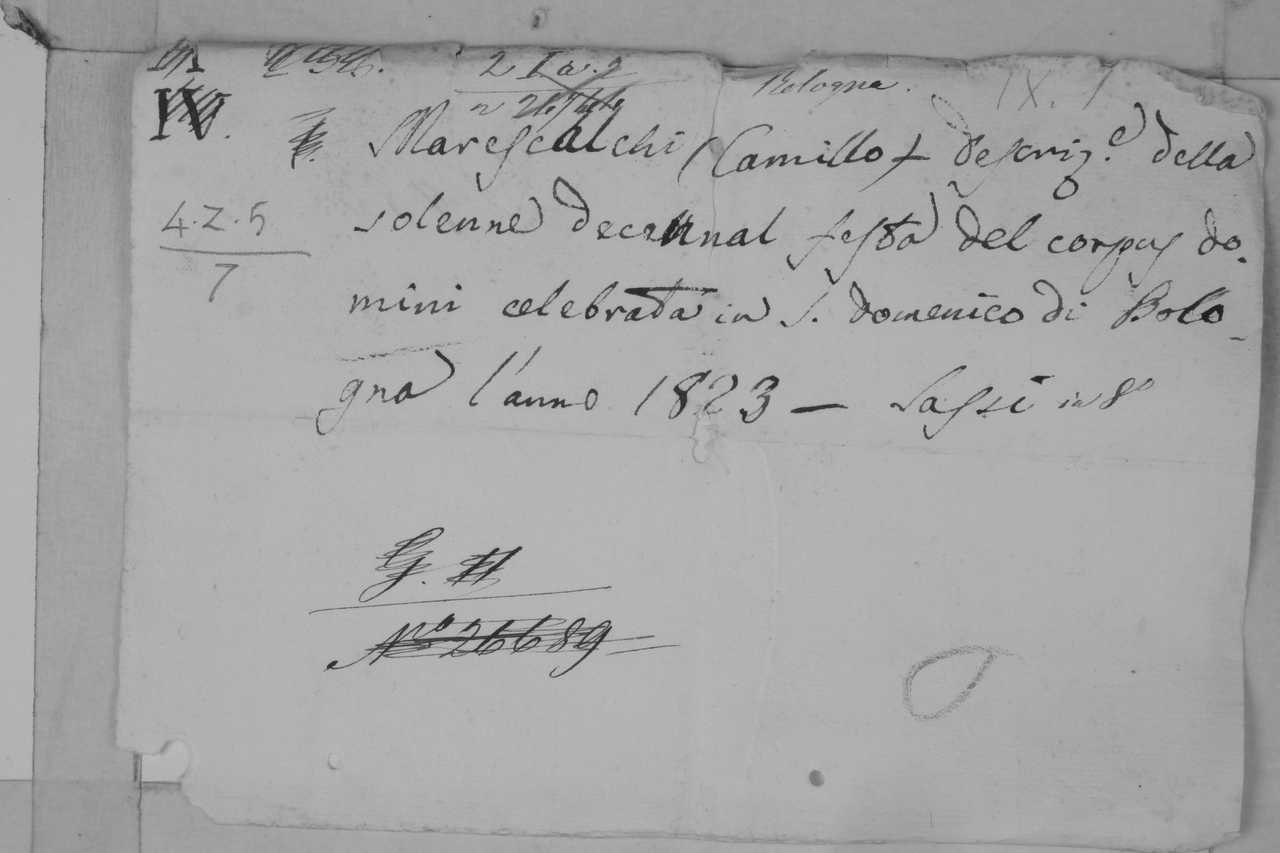 Bologna.
IX. 7
IV.
Marescalchi (Camillo) descriz.e della
4.Z.5
7
solenne decennal festa del corpus do-
mini celebrata in S. domenico di Bolo-
gna l'anno 1823 — Sassi in 8°
G. H
N.o 26689